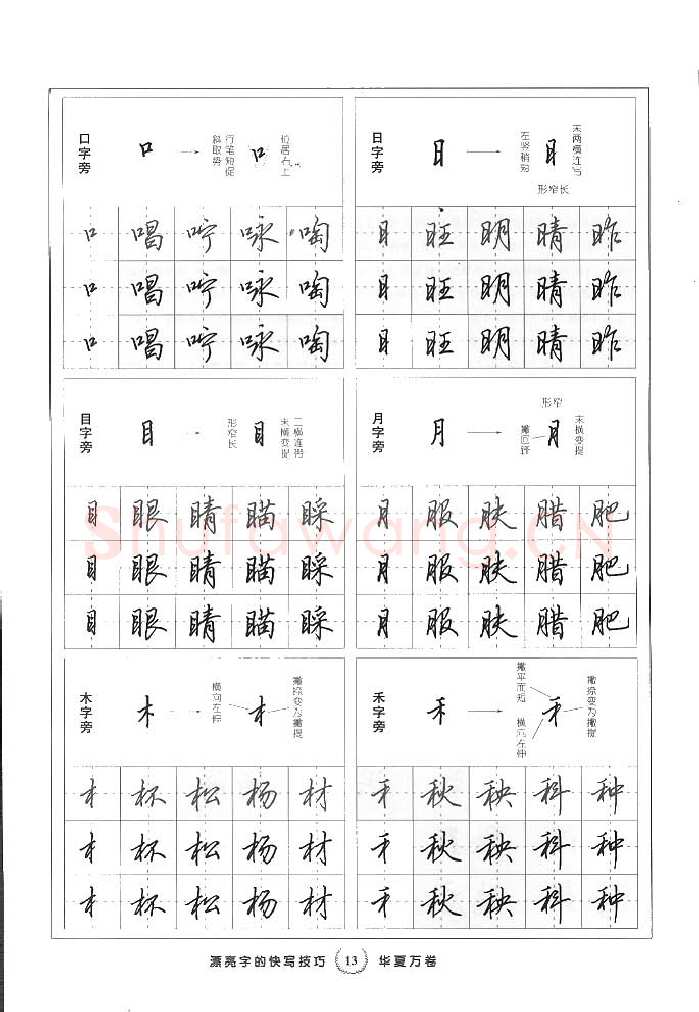 口字旁
口
行笔短促
斜取势
口
位居左上
口 唱 咛 咏 啕
口 唱 咛 咏 啕
口 唱 咛 咏 啕
日字旁
日
左竖稍短
日
末两横连写
形窄长
日 旺 明 晴 昨
日 旺 明 晴 昨
日 旺 明 晴 昨
目字旁
目
形窄长
目
末横变提
目 眼 睛 瞄 睬
目 眼 睛 瞄 睬
目 眼 睛 瞄 睬
月字旁
月
形窄
撇回锋
月
末横变提
月 服 肤 腊 肥
月 服 肤 腊 肥
月 服 肤 腊 肥
Shufawang.CN
木字旁
木
横向左伸
木
撇捺变为撇提
木 杯 松 杨 材
木 杯 松 杨 材
木 杯 松 杨 材
禾字旁
禾
撇平而短
横向左伸
禾
撇捺变为撇提
禾 秋 秧 科 种
禾 秋 秧 科 种
禾 秋 秧 科 种
漂亮字的快写技巧 13 华夏万卷